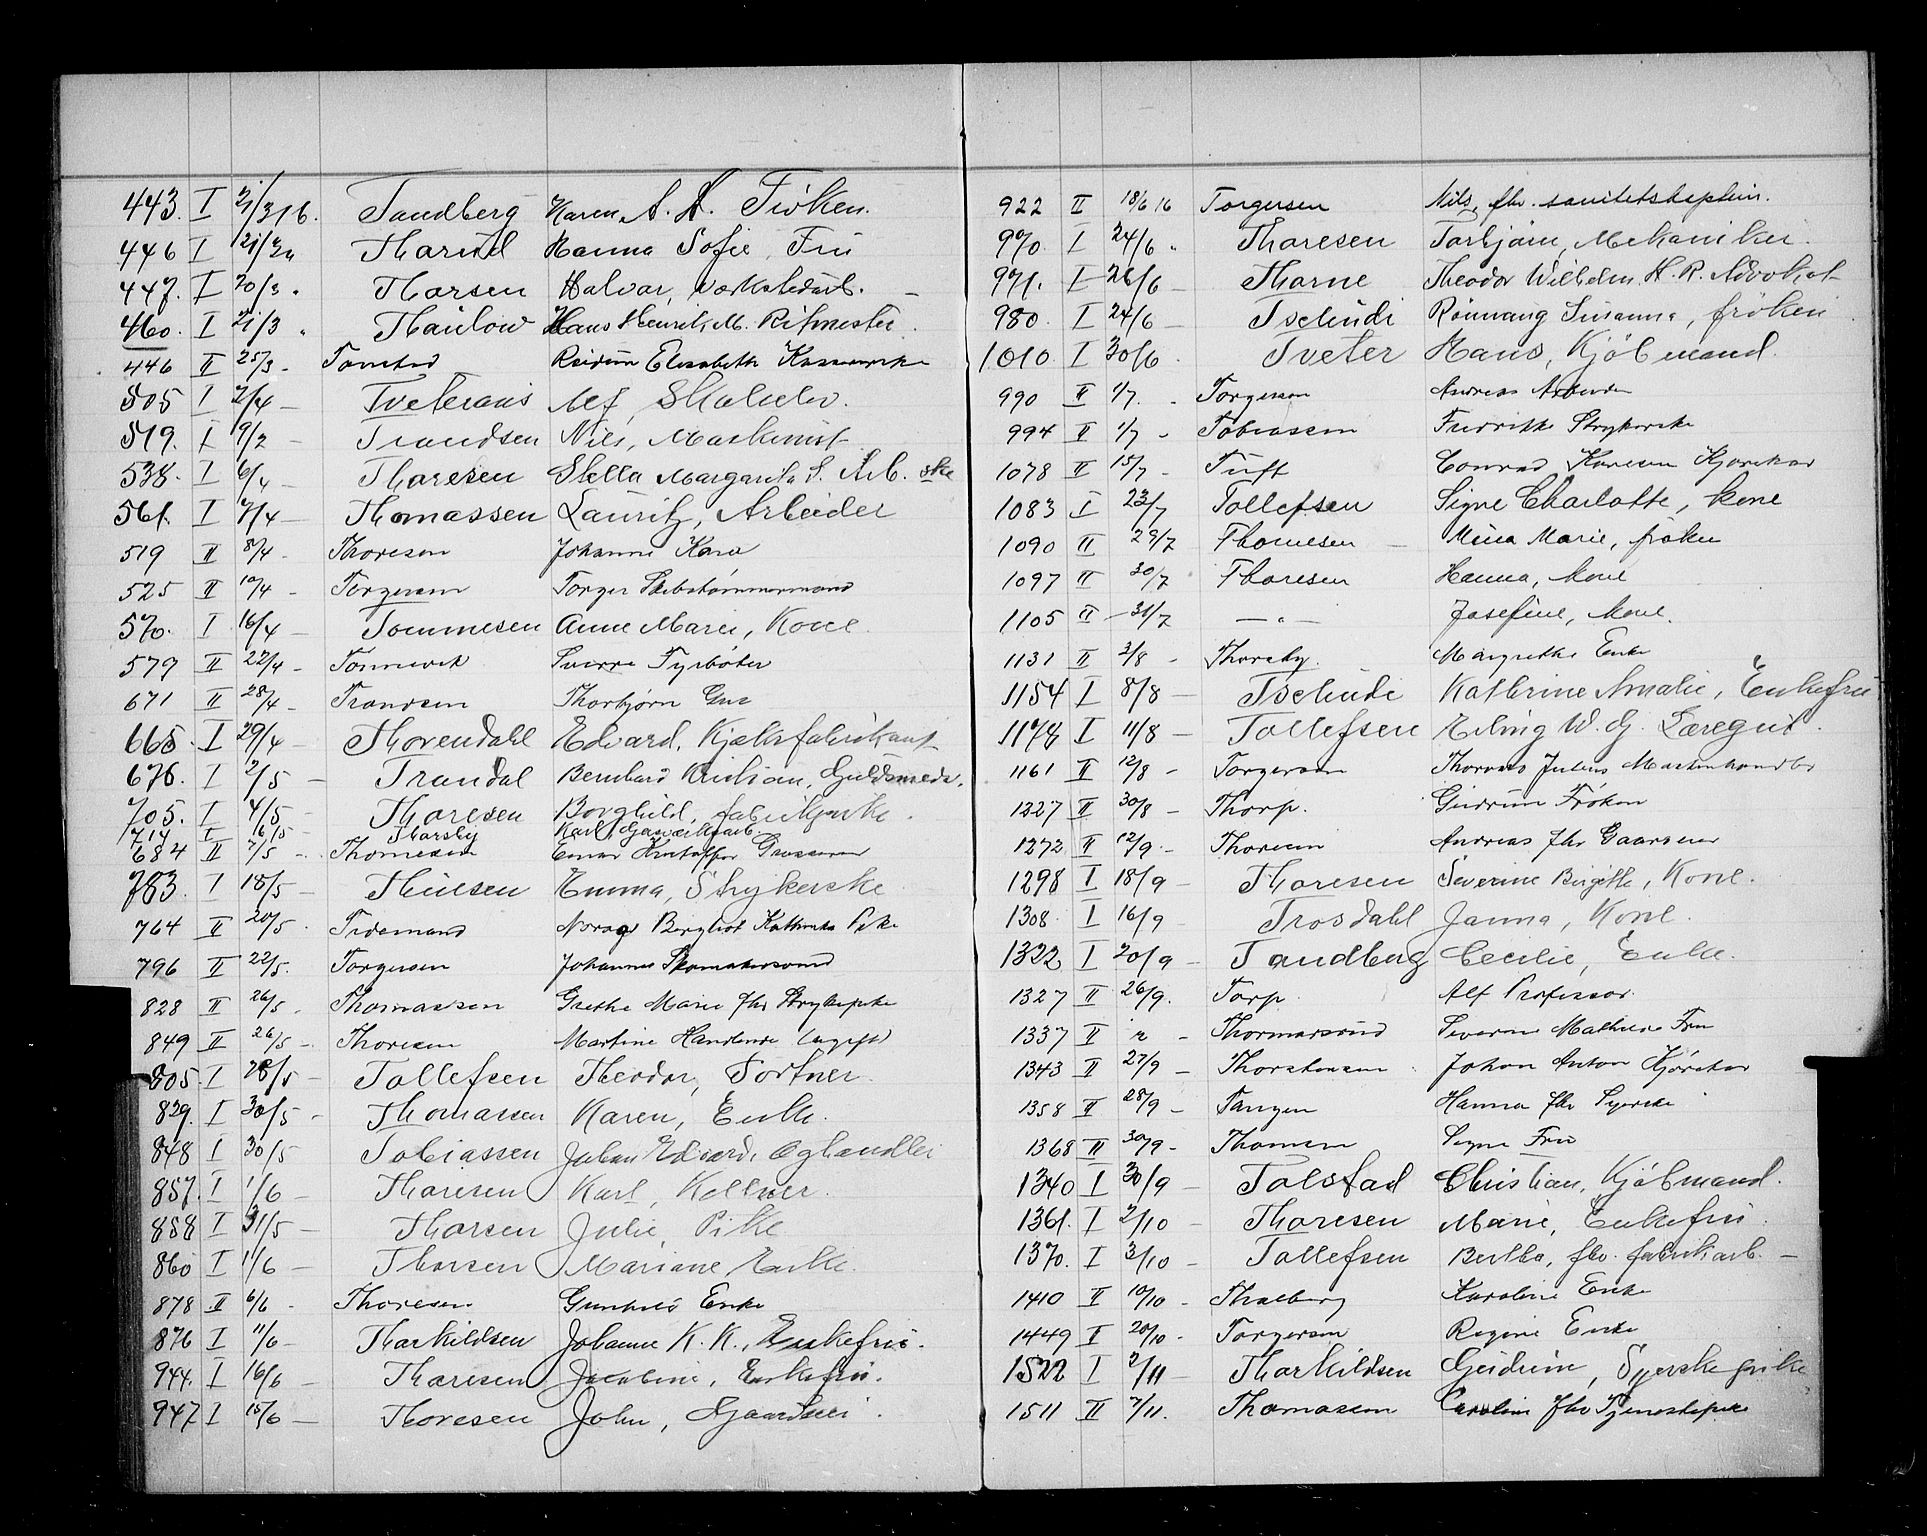 443. I 21/3 16. Sandberg Karen A. A. Frøken.
446 I 21/3 " Tharud Hanna Sofie, Fru
447. I 20/3 " Thorsen Halvar, verkstedarb. —
460. I 21/3 " Thaulow Hans Henrik M. Ritmester.
446 II 25/3 - Tomstad Reidun Elisabeth
505 I 2/4 — Tveteraas Alf, Skoleelev.
519. I 9/2 — Trondsen Nils, Maskinist
538. I 6/4 — Thoresen Stella Margarita S. Arb. ske
561. I 7/4 — Thomassen Lauritz, Arbeider
519 II 8/4 - Thoresen Johanne Kone
525 II 10/4 - Torgersen Torger Skibstømmermand
570. I 16/4 — Tommesen Anne Marie, Kone.
579 II 22/4 - Tonnevik Sverre Fyrbøter
671 II 28/4 - Trondsen Thorbjørn
665. I 29/4 — Thorendahl Edvard, Kjæksfabrikant
676. I 2/5 — Trandal Bernhard Kristian, Guldsmeds.
705. I 4/5 — Thoresen Borghild, fabrikarske.
714 I 6/5 — Thorsby Karl, Gasverksarb.
684 II 7/5 - Thomesen Einar Kristoffer Grosserer
783. I 18/5 — Thuesen Emma, Strykerske
764 II 20/5 . Tidemand Norag Bergliot Kathinka Pike
796 II 22/5. Torgersen Johannes Skomakersvend
828 II 26/5 . Thomassen Grethe Marie fhv Strykepike
849 II 26/5 - Thoresen Martine Handlende (ugift)
805. I 28/5 — Tollefsen Theodor, Portner.
829. I 30/5 - Thomassen Karen, Enke.
848 I 30/5 Tobiassen Johan Edvard, Oghandler
857. I 1/6 — Thoresen Karl, Kellner.
858 I 31/5 — Thorsen Julie, Pike
860 I 1/6 — Thorsen Mariane, Enke.
878 II 6/6 - Thoresen Gunhild Enke
876 I 11/6 — Thorkildsen Johanne K. K., Enkefru.
944. I 16/6 — Thoresen Jacobine, Enkefru.
947 I 15/6 — Thoresen John, Gaardeier.
922 II 18/6 16 Torgersen Nils, fhv. sanitetskaptein.
970. I 24/6 " Thoresen Torbjørn, Mekaniker.
971. I 26/6 — Thorne Theodor Wilhelm H. R. Advokat
980. I 24/6 — Tschudi Rønnaug Susanna, frøken
1010 I 30/6 . Tveter Hans, Kjøbmand.
990 II 1/7. - Torgersen Andreas Arbeider
994 II 1/7 - Tobiassen Fredrikke Strykerske
1078 II 15/7 - Tuft Conrad Hansen Kjørekar
1083 I 23/7 Tollefsen Signe Charlotte, kone
1090 II 29/7 Thomesen — Mina Marie, frøken
1097 II 30/7 Thoresen Hanna, kone
1105 II — 31/7 — " — Josefine, kone.
1131 II 3/8 - Thoresby. Margrethe Enke
1154 I 8/8 — Tschudi Kathrine Amalie, Enkefru
1178 I 11/8 — Tollefsen Erling W. G. Læregut.
1161 II 12/8 - Torgersen Thorvald Julius Maskinhandler
1227 II 30/8 - Thorp. Gudrun Frøken
1272 II 12/9 - Thoresen Andreas fhv Gaardeier
1298 I 18/9 — Thoresen Severine Birgitte, Kone.
1308. I 16/9 Trosdahl Janna, Kone.
1322 I 20/9 — Tandberg Cecilie, Enke.
1327 II 26/9. Torp. Alf Professor.
1337 II " - Thormodsrud Severine Mathilde Fru
1343 II 27/9 — Thorstensen Johan Anton Kjørekar
1358 II 28/9 — Tangen Hanna fhv Syerske
1368 II 30/9 - Thomsen Signe Fru
1340 I 30/9 — Tolstad Christian, Kjøbmand.
1361. I 2/10 — Thoresen Marie, Enkefru.
1370. I 3/10 — Tollefsen Bertha, fhv. fabrikarb. —
1410 II 10/10 - Thalberg Karoline Enke
1449 I 20/10 - Torgersen Regine Enke
1522 I 2/11 — Thorkildsen Gudrun, Syerskepike
1511 II 7/11. Thomassen Caroline fhv Tjenestepike